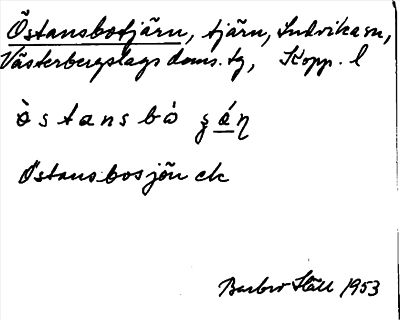 Östansbotjärn, tjärn, Ludvika sn,
Västerbergslags doms. tg, Kopp. l
östansbo
Östansbosjön ek
Barbro Ställ 1953